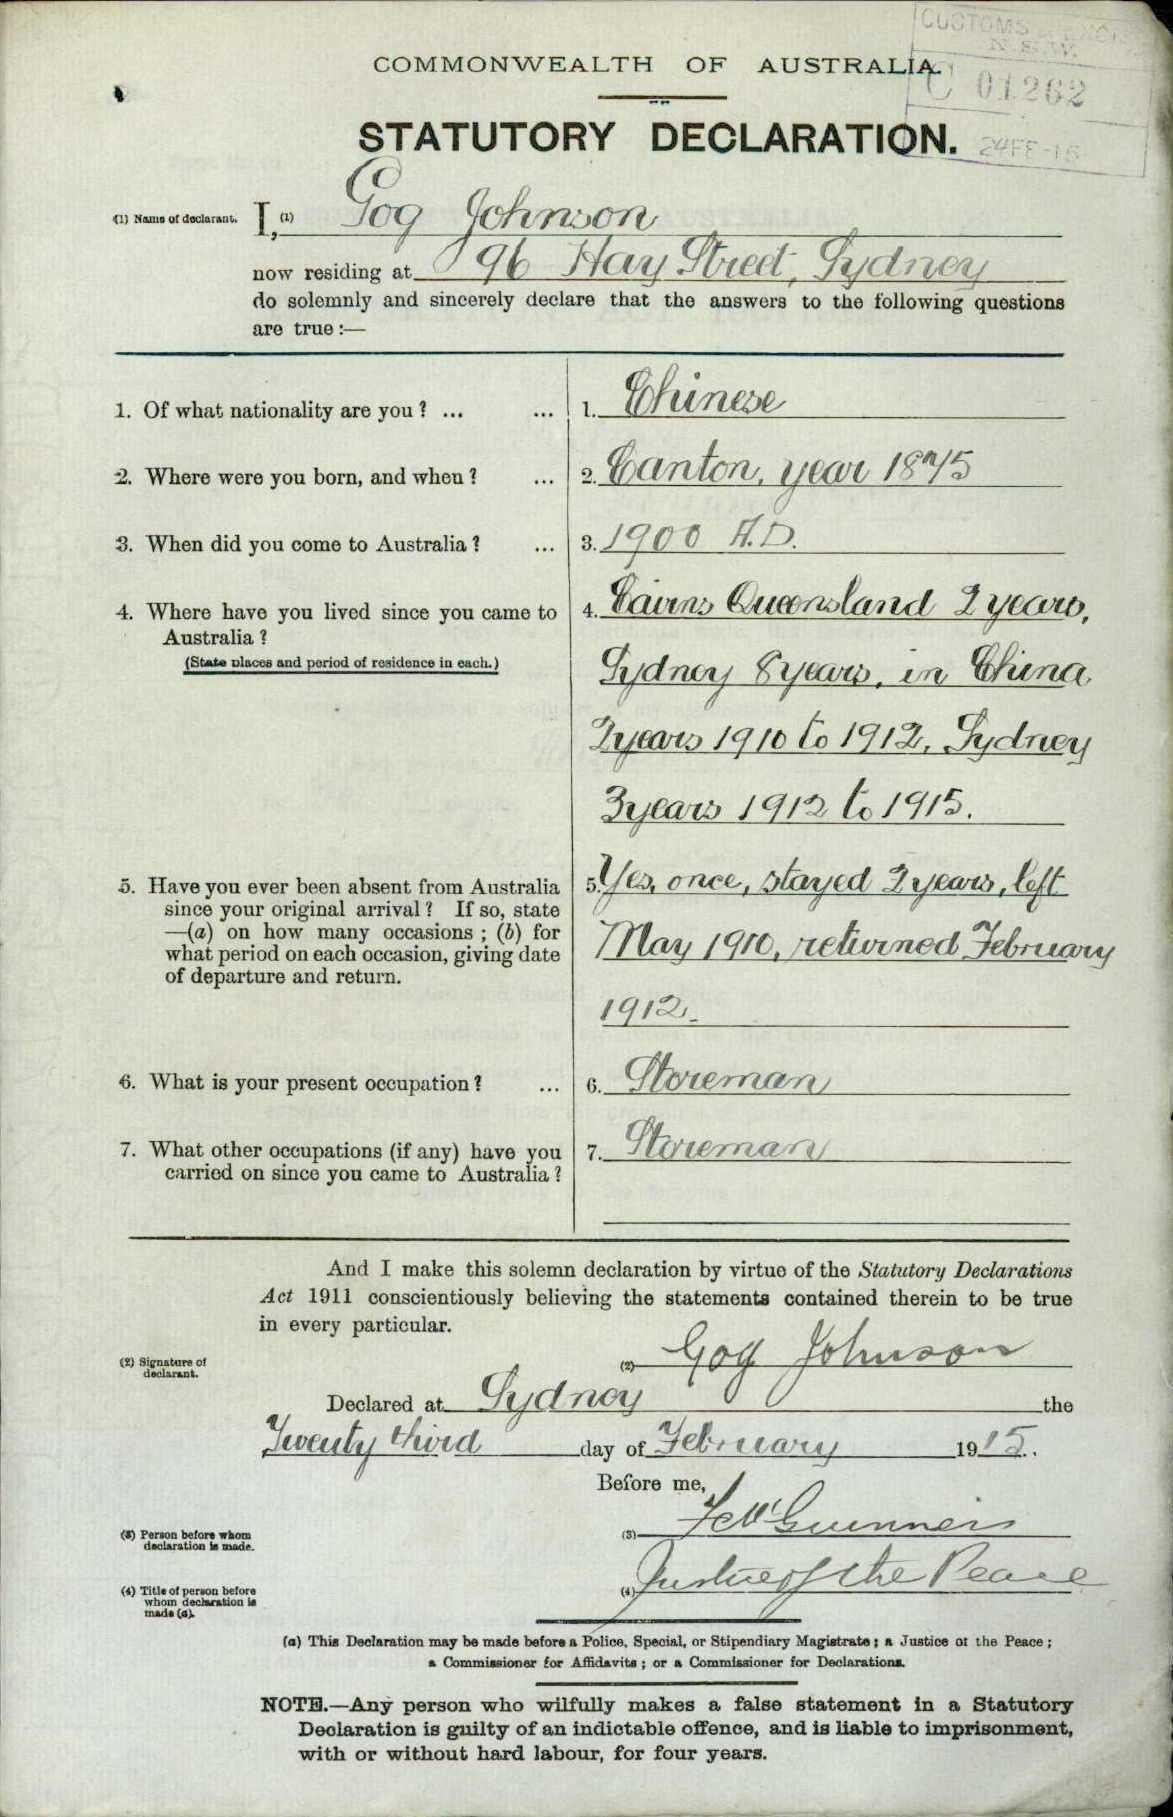 CUSTOMS & EXCISE
N.S.W.
C 01262
24 FE - 15
COMMONWEALTH OF AUSTRALIA.
STATUTORY DECLARATION.
(1) Name of declarant. I, (1) Gog Johnson
now residing at 96 Hay Street, Sydney
do solemnly and sincerely declare that the answers to the following questions
are true :—
1. Of what nationality are you ? ... ... 1. Chinese
2. Where were you born, and when ? ... 2. Canton, year 1875
3. When did you come to Australia ? ... 3. 1900 A.D.
4. Where have you lived since you came to 4. Cairns Queensland 2 years,
Australia ?
(State places and period of residence in each.) Sydney 8 years, in China
2 years 1910 to 1912, Sydney
3 years 1912 to 1915.
5. Have you ever been absent from Australia 5. Yes, once, stayed 2 years, left
since your original arrival ? If so, state
—(a) on how many occasions ; (b) for May 1910, returned February
what period on each occasion, giving date
of departure and return.
1912.
6. What is your present occupation ? ... 6. Storeman
7. What other occupations (if any) have you 7. Storeman
carried on since you came to Australia ?
And I make this solemn declaration by virtue of the Statutory Declarations
Act 1911 conscientiously believing the statements contained therein to be true
in every particular.
(2) Signature of (2) Gog Johnson
declarant.
Declared at Sydney the
Twenty third day of February 1915.
Before me,
(3) Person before whom (3)
declaration is made.
(4) Title of person before (4) Justice of the Peace
whom declaration is
made (a).
(a) This Declaration may be made before a Police, Special, or Stipendiary Magistrate ; a Justice of the Peace ;
a Commissioner for Affidavits ; or a Commissioner for Declarations.
NOTE.—Any person who wilfully makes a false statement in a Statutory
Declaration is guilty of an indictable offence, and is liable to imprisonment,
with or without hard labour, for four years.